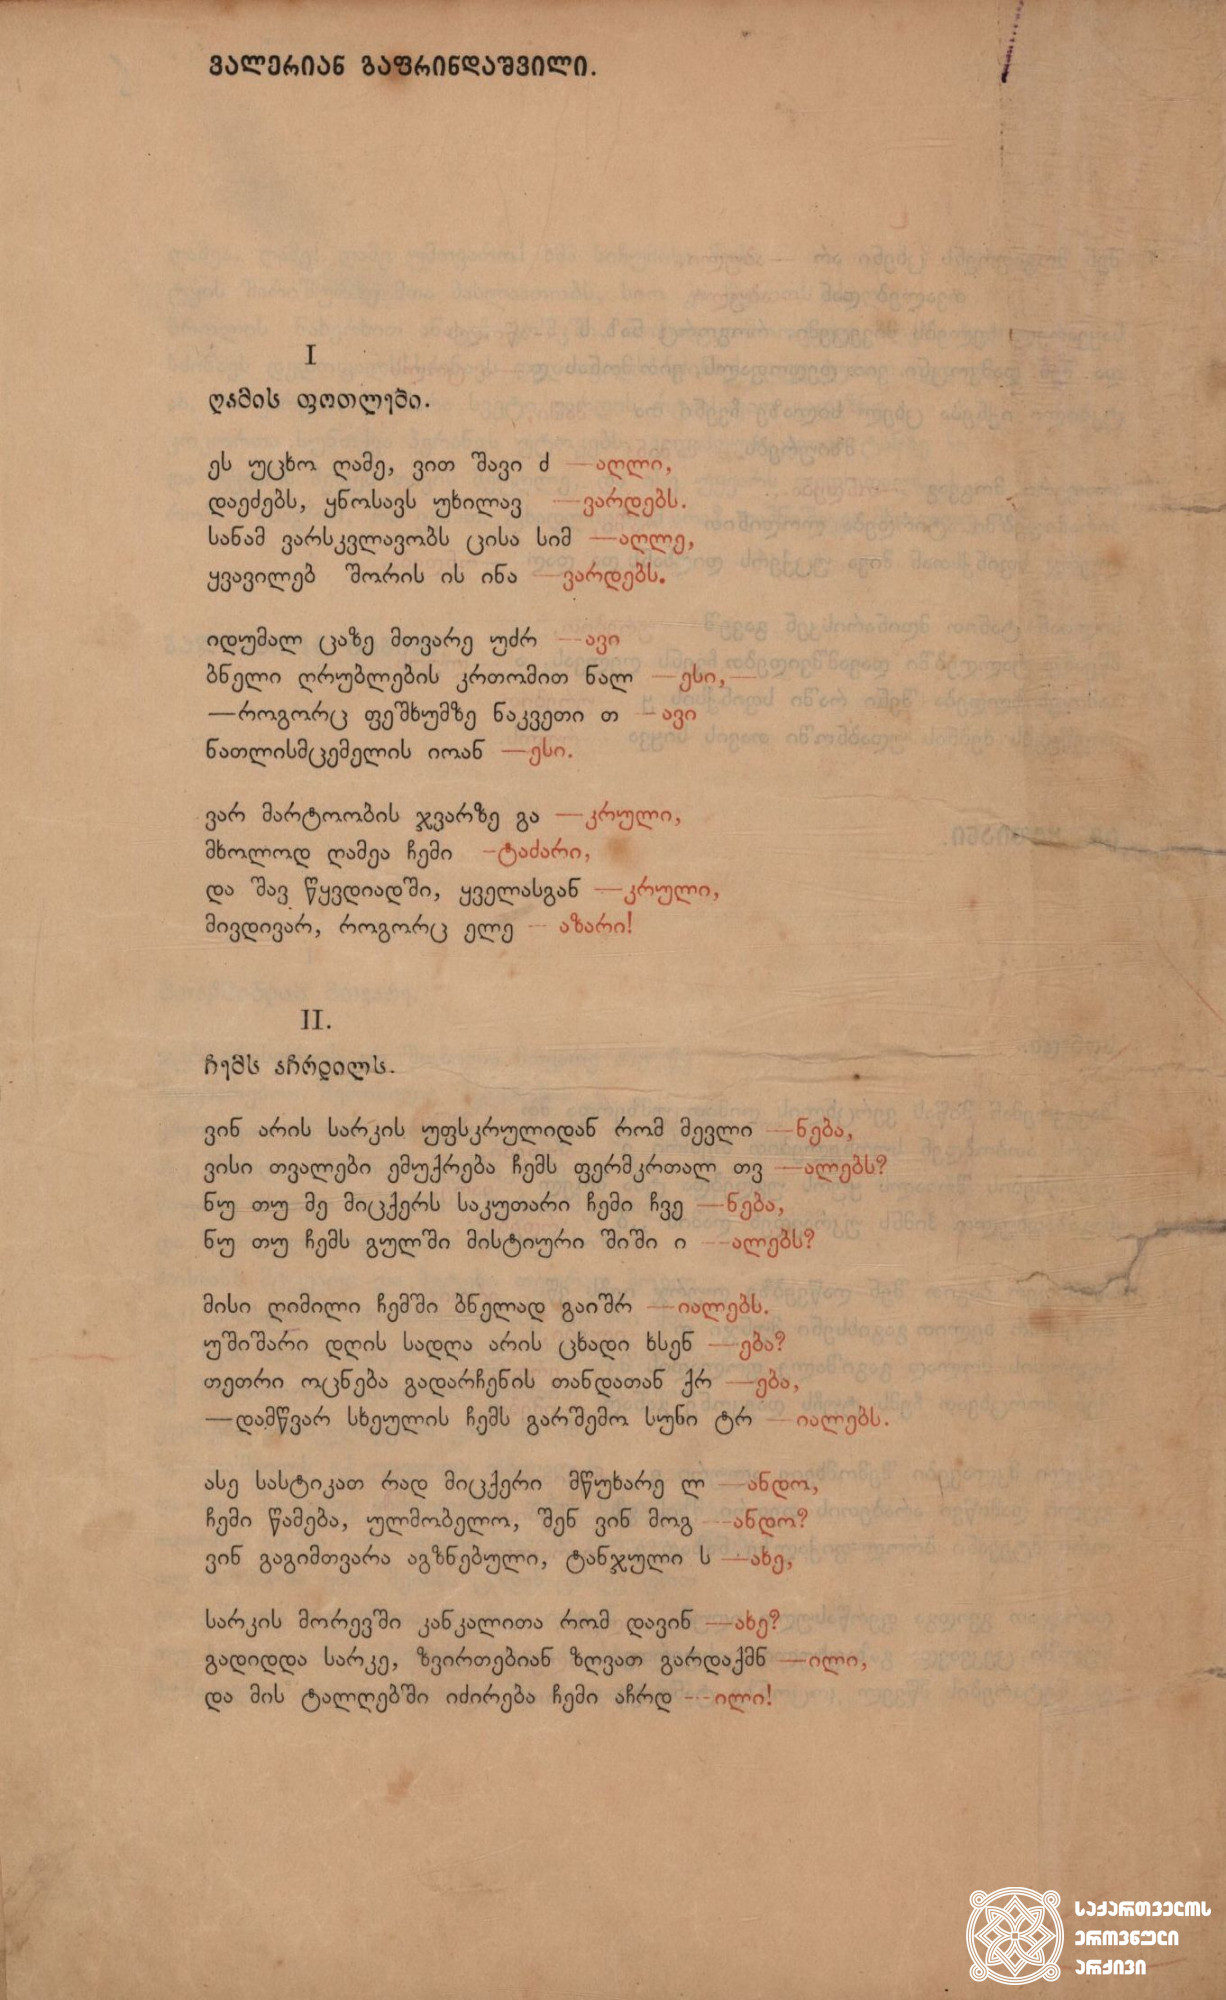 ვალერიან გაფრინდაშვილი.
I
ღამის ფოთლები.
ეს უცხო ღამე, ვით შავი ძ —აღლი,
დაეძებს, ყნოსავს უხილავ —ვარდებს.
სანამ ვარსკვლავობს ცისა სიმ —აღლე,
ყვავილებ შორის ის ინა —ვარდებს.
იდუმალ ცაზე მთვარე უძრ —ავი
ბნელი ღრუბლების კრთომით ნალ —ესი,—
—როგორც ფეშხუმზე ნაკვეთი თ —ავი
ნათლისმცემელის იოან —ესი.
ვარ მარტოობის ჯვარზე გა —კრული,
მხოლოდ ღამეა ჩემი —ტაძარი,
და შავ წყვდიადში, ყველასგან —კრული,
მივდივარ, როგორც ელე — აზარი!
II.
ჩემს აჩრდილს.
ვინ არის სარკის უფსკრულიდან რომ მევლი —ნება,
ვისი თვალები ემუქრება ჩემს ფერმკრთალ თვ —ალებს?
ნუ თუ მე მიცქერს საკუთარი ჩემი ჩვე —ნება,
ნუ თუ ჩემს გულში მისტიური შიში ი —ალებს?
მისი ღიმილი ჩემში ბნელად გაიშრ —იალებს.
უშიშარი დღის სადღა არის ცხადი ხსენ —ება?
თეთრი ოცნება გადარჩენის თანდათან ქრ —ება,
—დამწვარ სხეულის ჩემს გარშემო სუნი ტრ —იალებს.
ასე სასტიკათ რად მიცქერი მწუხარე ლ —ანდო,
ჩემი წამება, ულმობელო, შენ ვინ მოგ —ანდო?
ვინ გაგიმთვარა აგზნებული, ტანჯული ს —ახე,
სარკის მორევში კანკალითა რომ დავინ —ახე?
გადიდდა სარკე, ზვირთებიან ზღვათ გარდაქმნ —ილი,
და მის ტალღებში იძირება ჩემი აჩრდ —ილი!
საქართველოს
ეროვნული
არქივი